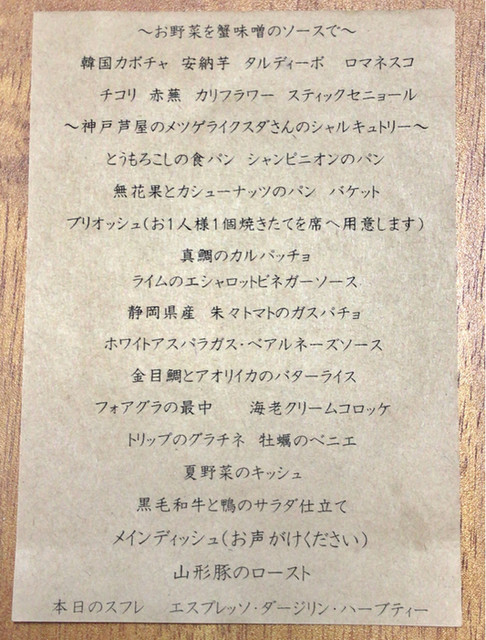 ～お野菜を蟹味噌のソースで～
韓国カボチャ 安納芋 タルディーボ ロマネスコ
チコリ 赤蕪 カリフラワー スティックセニョール
～神戸芦屋のメツゲライクスダさんのシャルキュトリー～
とうもろこしの食パン シャンピニオンのパン
無花果とカシューナッツのパン バケット
ブリオッシュ(お1人様1個焼きたてを席へ用意します)
真鯛のカルパッチョ
ライムのエシャロットビネガーソース
静岡県産 朱々トマトのガスパチョ
ホワイトアスパラガス・ベアルネーズソース
金目鯛とアオリイカのバターライス
フォアグラの最中 海老クリームコロッケ
トリップのグラチネ 牡蠣のベニエ
夏野菜のキッシュ
黒毛和牛と鴨のサラダ仕立て
メインディッシュ(お声がけください)
山形豚のロースト
本日のスフレ エスプレッソ・ダージリン・ハーブティー